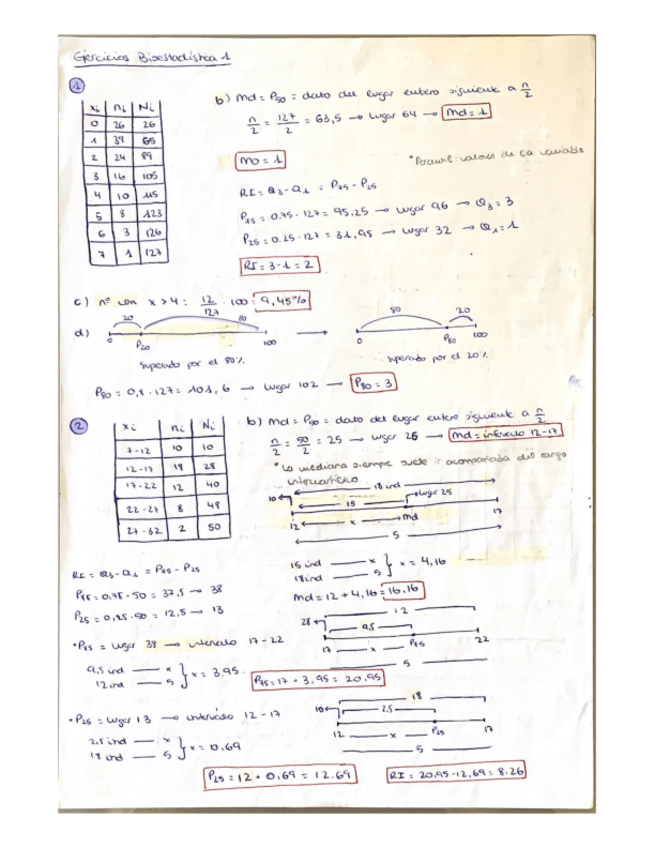 Ejercicios Bioestadística 1
1
xi ni Ni
0 26 26
1 39 65
2 24 89
3 16 105
4 10 115
5 8 123
6 3 126
7 1 127
b) Md = P50 = dato del lugar entero siguiente a n/2
n/2 = 127/2 = 63,5 → lugar 64 → Md = 1
Mo = 1
*Percentil: valores de la variable
RI = Q3 - Q1 = P75 - P25
P75 = 0,75 · 127 = 95,25 → lugar 96 → Q3 = 3
P25 = 0.25 · 127 = 31,95 → lugar 32 → Q1 = 1
RI = 3 - 1 = 2
c) nº con x > 4 : 12/127 · 100 = 9,45%
d) 20 80
0 P20 100
superado por el 80%
→
80 20
0 P80 100
superado por el 20%
P80 = 0,8 · 127 = 101,6 → lugar 102 → P80 = 3
2
xi ni Ni
7-12 10 10
12-17 18 28
17-22 12 40
22-27 8 48
27-32 2 50
b) Md = P50 = dato del lugar entero siguiente a n/2
n/2 = 50/2 = 25 → lugar 26 → Md = intervalo 12-17
*La mediana siempre suele ir acompañada del rango
intercuartílico
18 ind
10 15 lugar 25
12 x md 17
5
15 ind — x
18 ind — 5 } x = 4,16
Md = 12 + 4,16 = 16,16
RI = Q3 - Q1 = P75 - P25
P75 = 0,75 · 50 = 37,5 → 38
P25 = 0,25 · 50 = 12,5 → 13
· P75 = lugar 38 → intervalo 17-22
9,5 ind — x
12 ind — 5 } x = 3,95
12
28 9,5
17 x P75 22
5
P75 = 17 + 3,95 = 20,95
· P25 = lugar 13 → intervalo 12-17
2,5 ind — x
18 ind — 5 } x = 0,69
18
10 2,5
12 x P25 17
5
P25 = 12 + 0,69 = 12.69
RI = 20,95 - 12,69 = 8.26